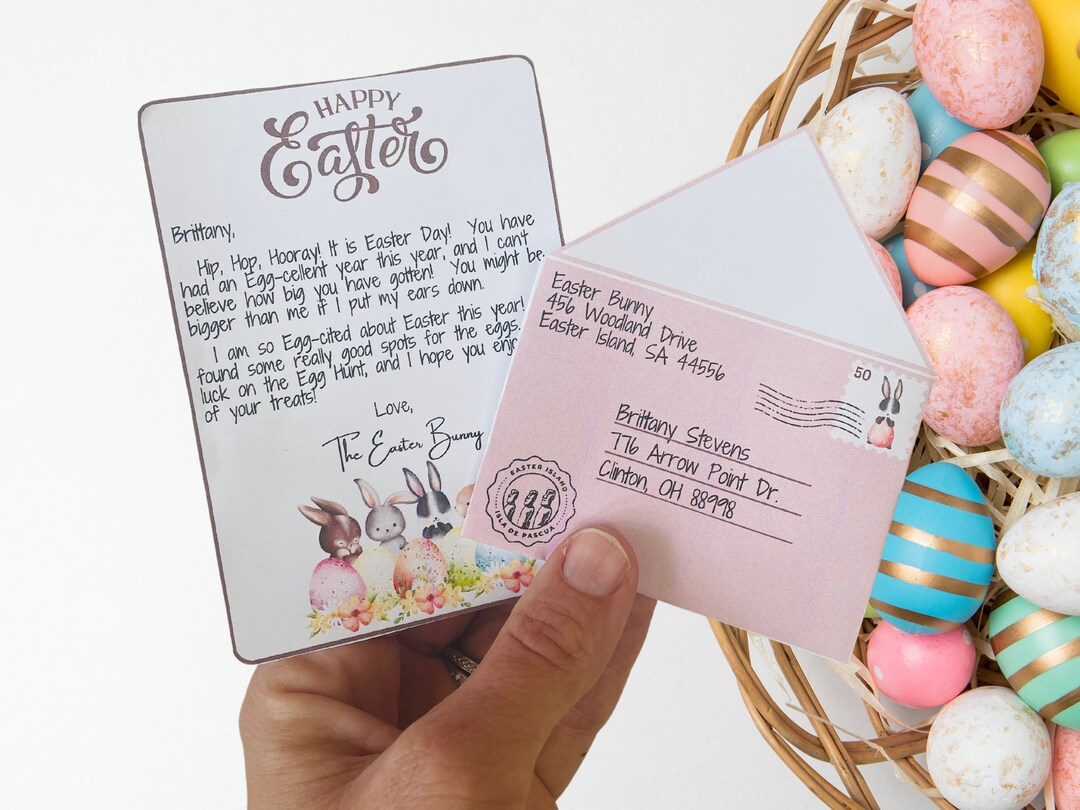 HAPPY
Easter
Brittany,
Hip, Hop, Hooray! It is Easter Day! You have
had an Egg-cellent year this year, and I can't
believe how big you have gotten! You might be
bigger than me if I put my ears down.
I am so Egg-cited about Easter this year!
found some really good spots for the eggs.
luck on the Egg Hunt, and I hope you
of your treats!
Love,
The Easter Bunny
Easter Bunny
456 Woodland Drive
Easter Island, SA 44556
50
Brittany Stevens
776 Arrow Point Dr.
Clinton, OH 88998
EASTER ISLAND
ISLA DE PASCUA